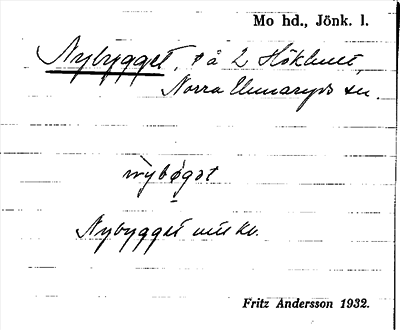 Mo hd., Jönk. l.
Nybygget, på 2 Höklunt
Norra Unnaryds sn.
nybøgət
Nybygget
Fritz Andersson 1932.